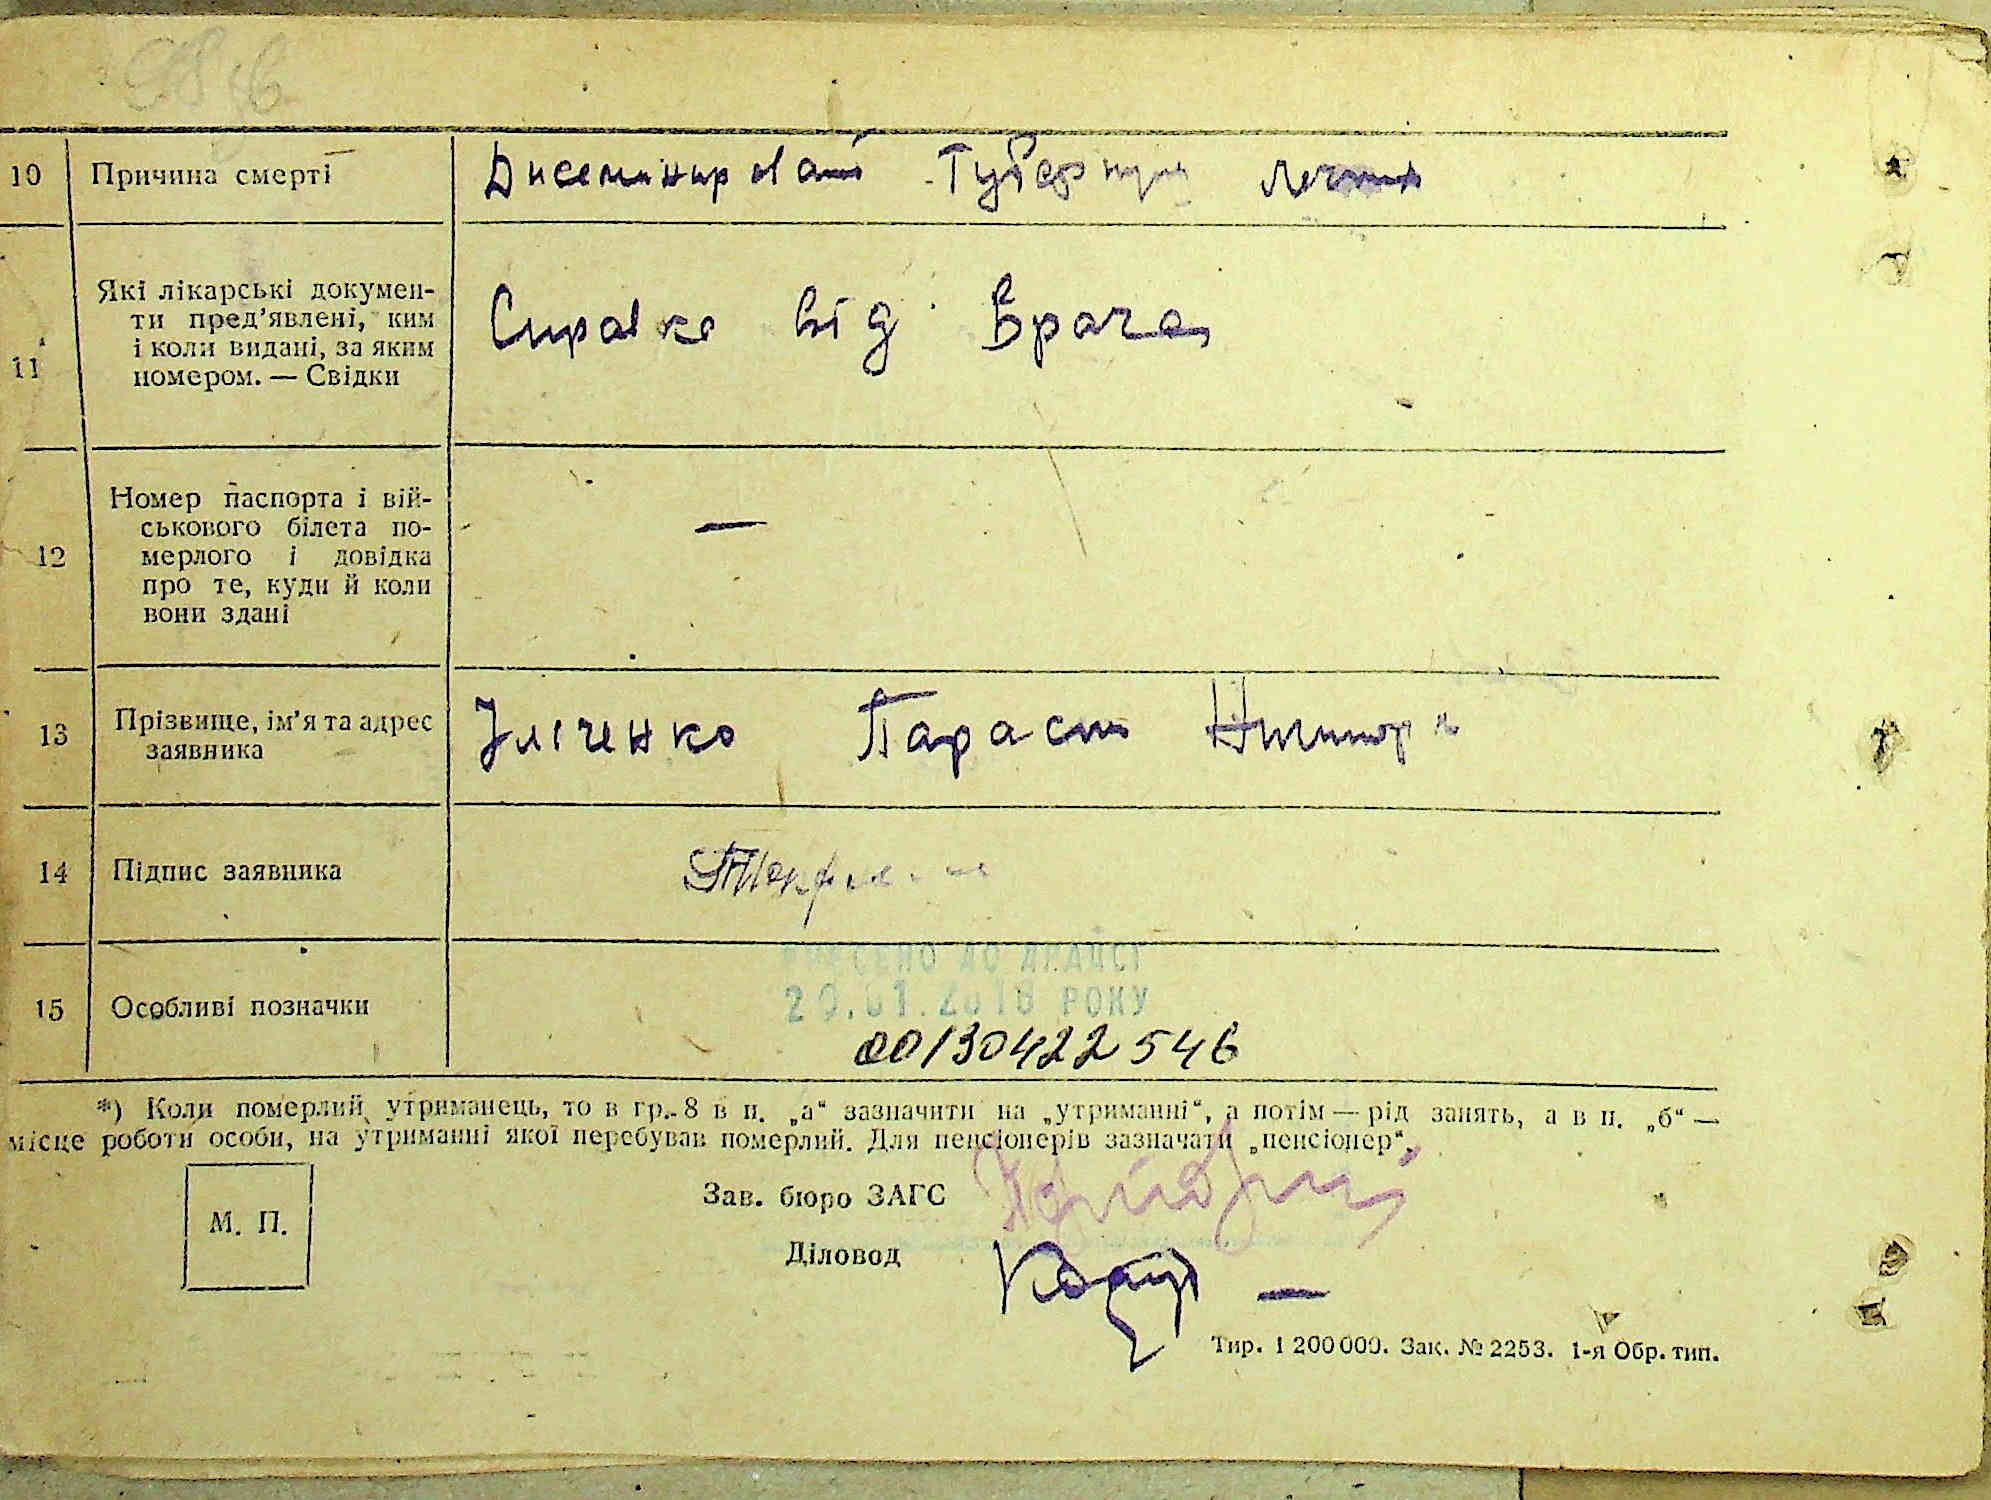 10 Причина смерті Дисеминировані Туберкул Легких
Які лікарські докумен-
ти пред’явлені, ким
11 і коли видані, за яким
номером. — Свідки
Справка від Врача
Номер паспорта і вій-
ськового білета по-
12 мерлого і довідка
про те, куди й коли
вони здані
—
13 Прізвище, ім’я та адрес
заявника
Іліченко Параск
14 Підпис заявника
15 Особливі позначки
ВНЕСЕНО ДО ДРАЦСГ
РОКУ
00130422546
*) Коли померлий утриманець, то в гр. 8 в п. „а“ зазначити на „утриманні“, а потім — рід занять, а в п. „б“ —
місце роботи особи, на утриманні якої перебував померлий. Для пенсіонерів зазначати „пенсіонер“.
М. П.
Зав. бюро ЗАГС
Діловод
Тир. 1 200 000. Зак. № 2253. 1-я Обр. тип.